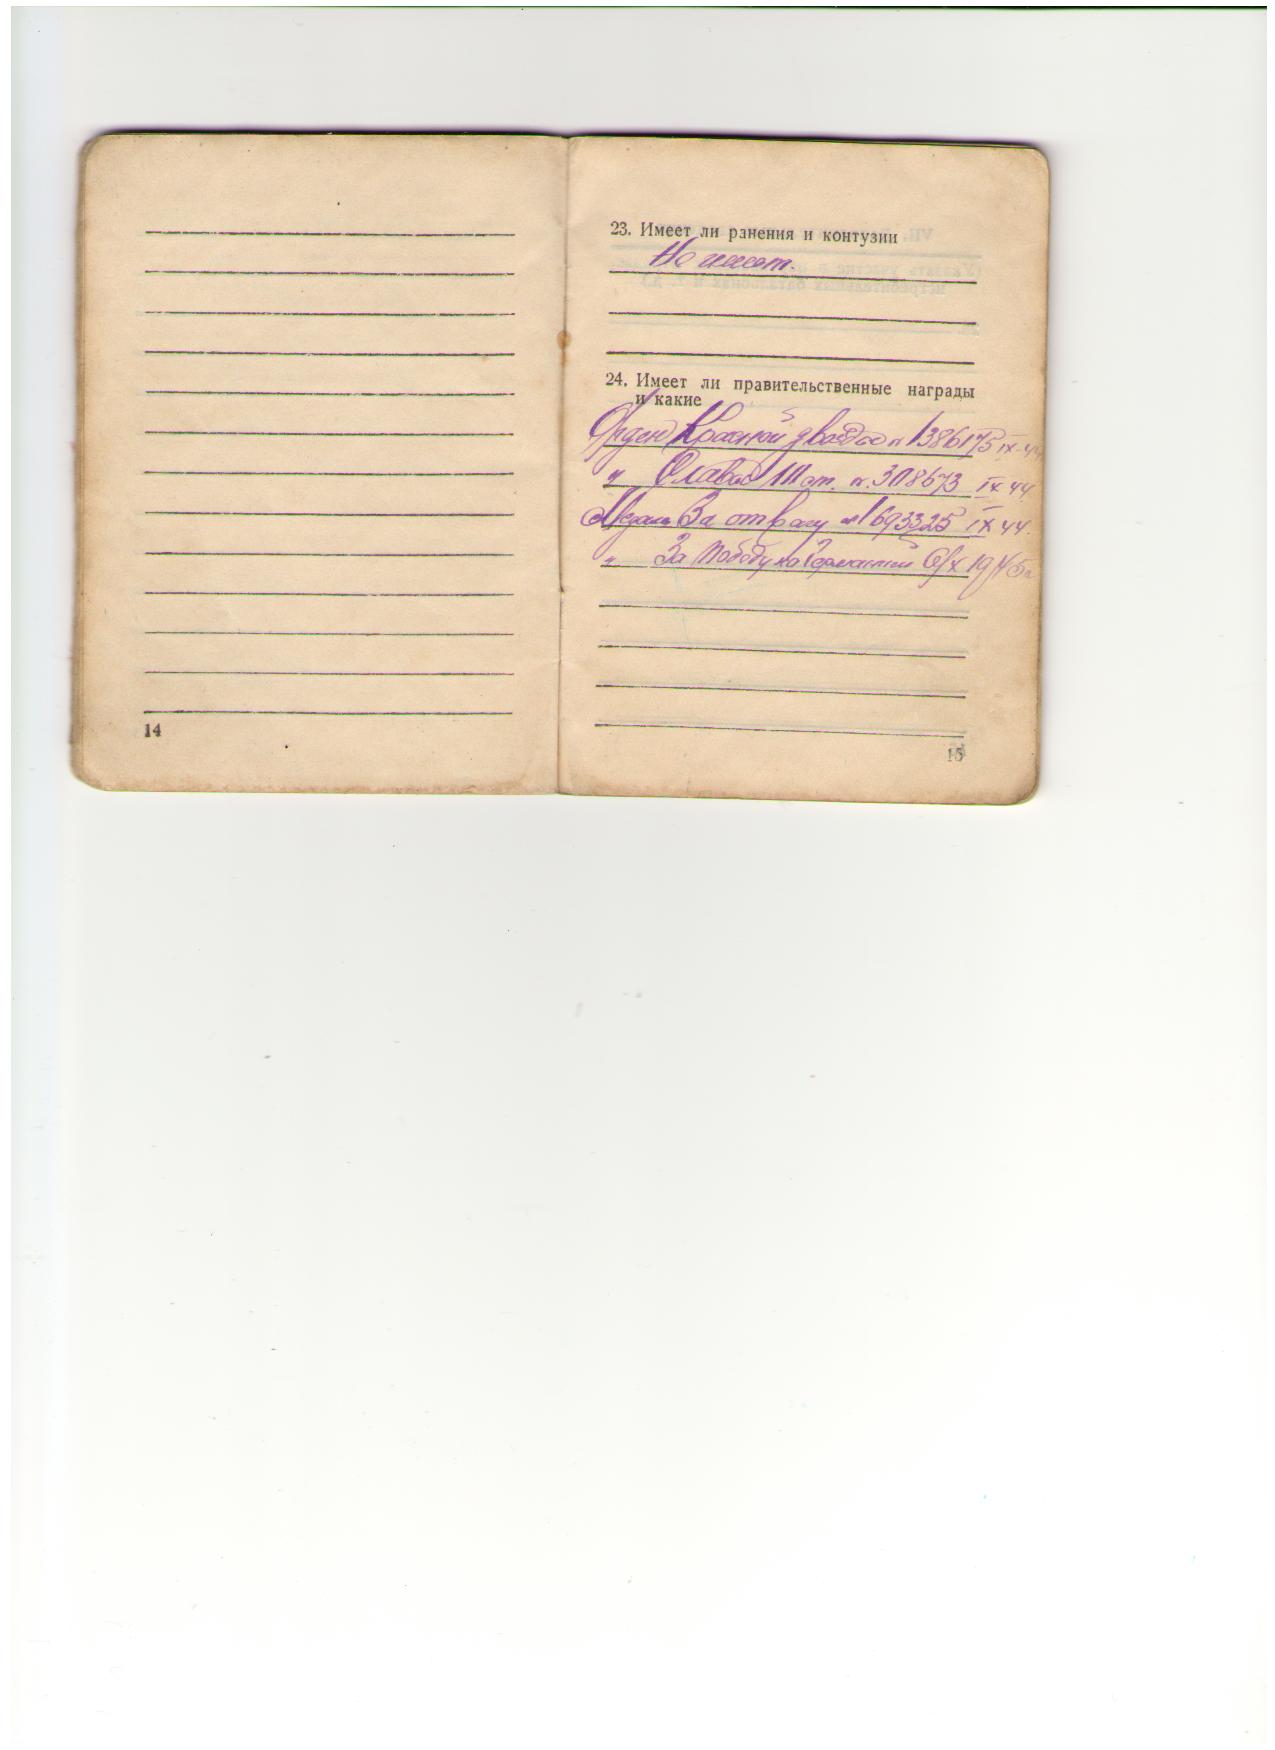 14
23. Имеет ли ранения и контузии
Не имеет.
24. Имеет ли правительственные награды
и какие
Орден Красной звезды n 1386175 IX-44
" Славы III ст. n. 308673 IX 44
Медаль За отвагу n 1693325 IX 44.
" За победу над Германией 1945г
15